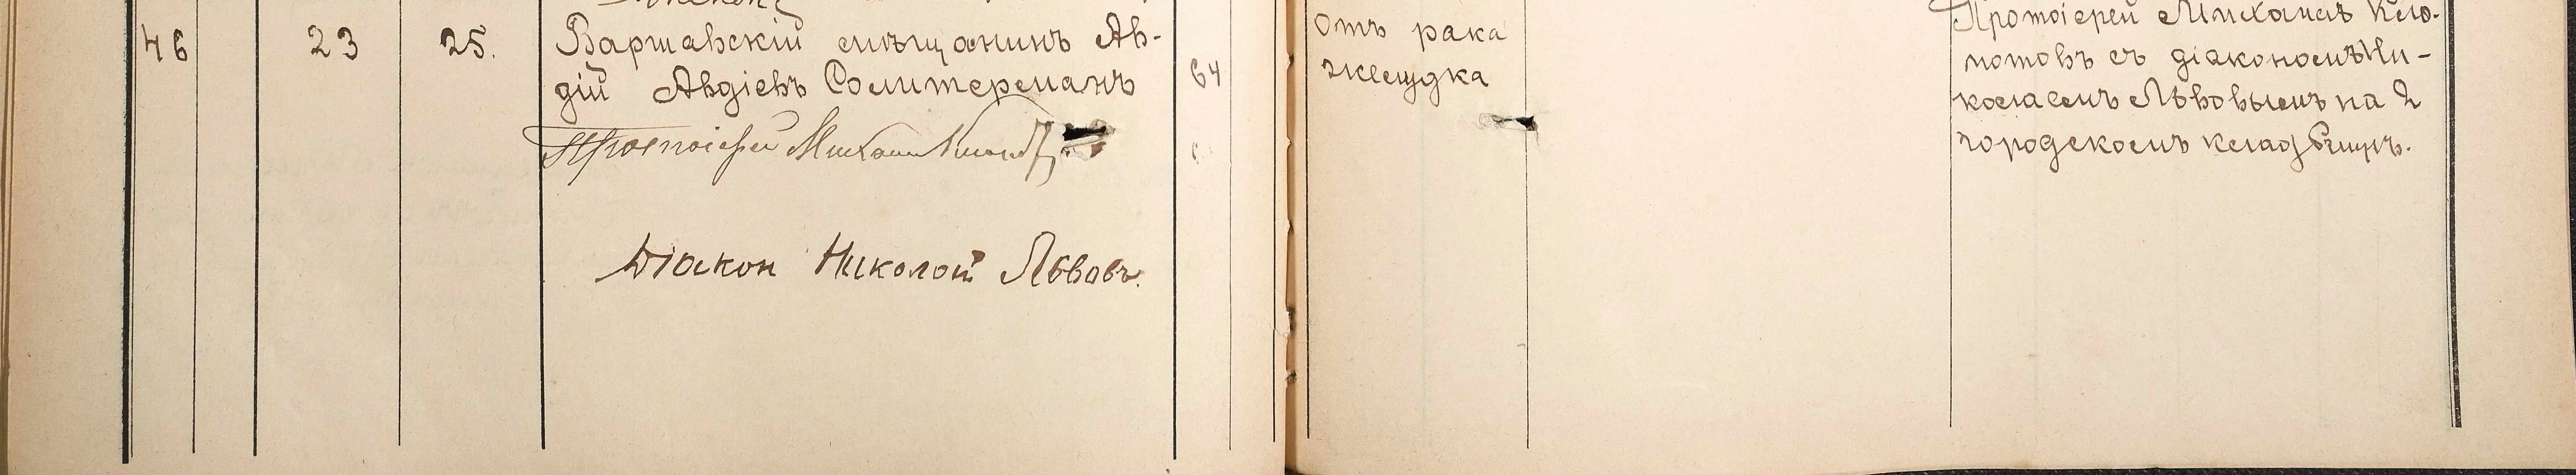 46 23 25. Варшавскій мѣщанинъ Ав-
дій Авдіевъ Солитерманъ 64
Протоіерей Михаилъ
Діакон Николай Львовъ.
отъ рака
желудка
Протоіерей Михаилъ Клю-
потовъ съ діакономъ Ни-
колаемъ Львовымъ на 2
городскомъ кладбищѣ.